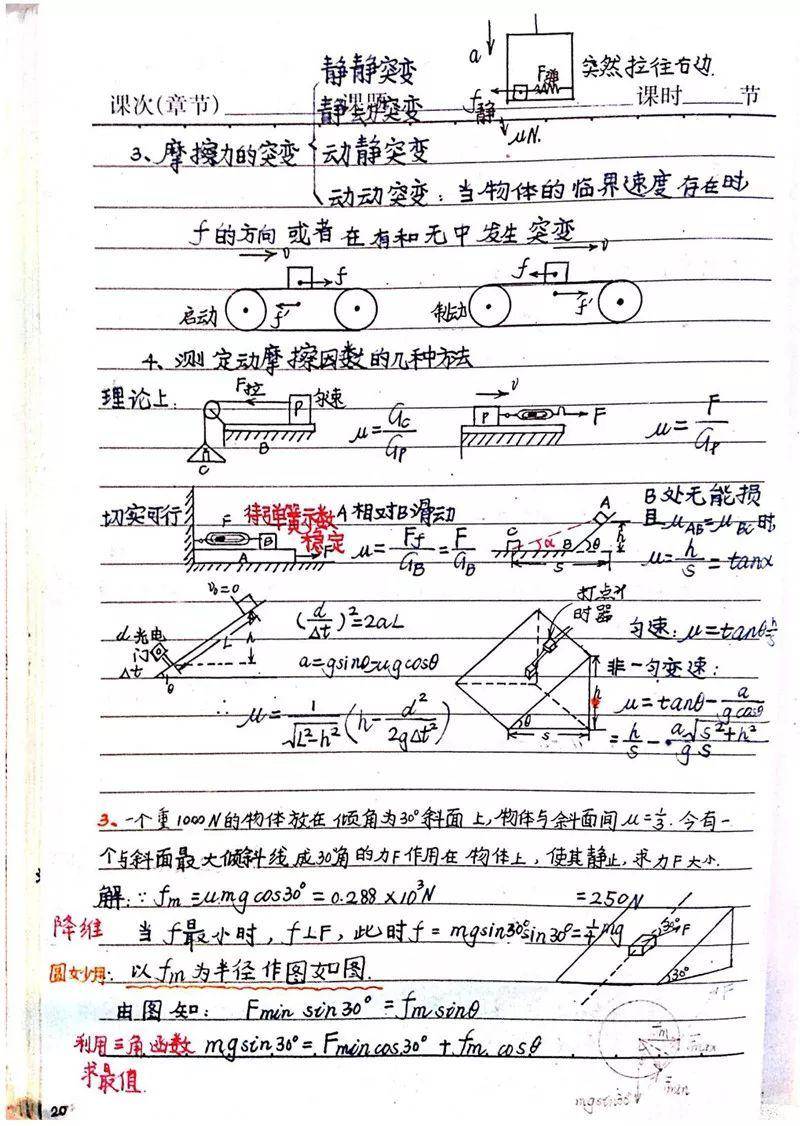 静静突变
a F弹 突然拉往右边.
课次(章节) 课题 静动突变 f静 课时 节
μN.
3、摩擦力的突变 动静突变
动动突变：当物体的临界速度存在时
f的方向或者在有和无中发生突变
v v
f f
启动 f′ 制动 f′
4、测定动摩擦因数的几种方法
理论上： F拉 P 匀速 B C μ=Gc/Gp P v F μ=F/Gp
切实可行 F 待弹簧示数稳定 B A F A相对B滑动 μ=Ff/GB=F/GB A C α B θ h s B处无能损
且μAB=μBC时
μ=h/s=tanα
v₀=0 d光电门 Δt L h θ (d/Δt)²=2aL
a=gsinθ-μgcosθ
∴ μ=1/√(L²-h²)(h-d²/2gΔt²)
打点计时器 θ s h
匀速：μ=tanθ h/s
非一匀变速：
μ=tanθ-a/gcosθ
=h/s-a√(s²+h²)/gs
3、一个重1000N的物体放在倾角为30°斜面上,物体与斜面间μ=1/3.今有一
个与斜面最大倾斜线成30°角的力F作用在物体上,使其静止,求力F大小.
解：∵fm=μmgcos30°=0.288×10³N =250N
降维 当f最小时,f⊥F,此时f=mgsin30°sin30°=1/4mg
30° F 30°
以fm为半径作图如图.
由图知：Fmin sin30°=fmsinθ
利用三角函数 mgsin30°=Fmincos30°+fm.cosθ
求最值.
fm Fmax Fmin
mgsin30°
20